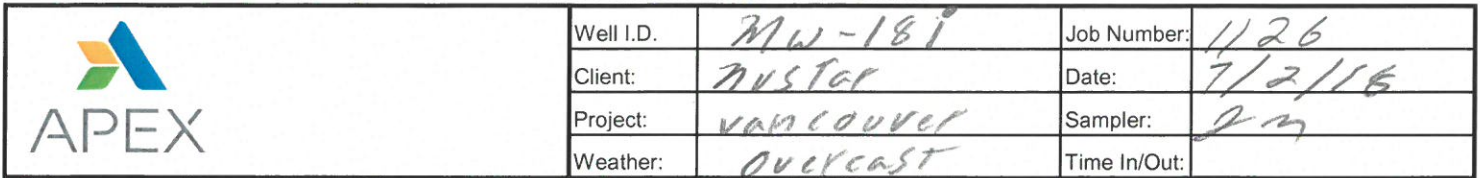 APEX
Well I.D. MW-18i Job Number: 1126
Client: NuStar Date: 7/2/18
Project: Vancouver Sampler:
Weather: Overcast Time In/Out: